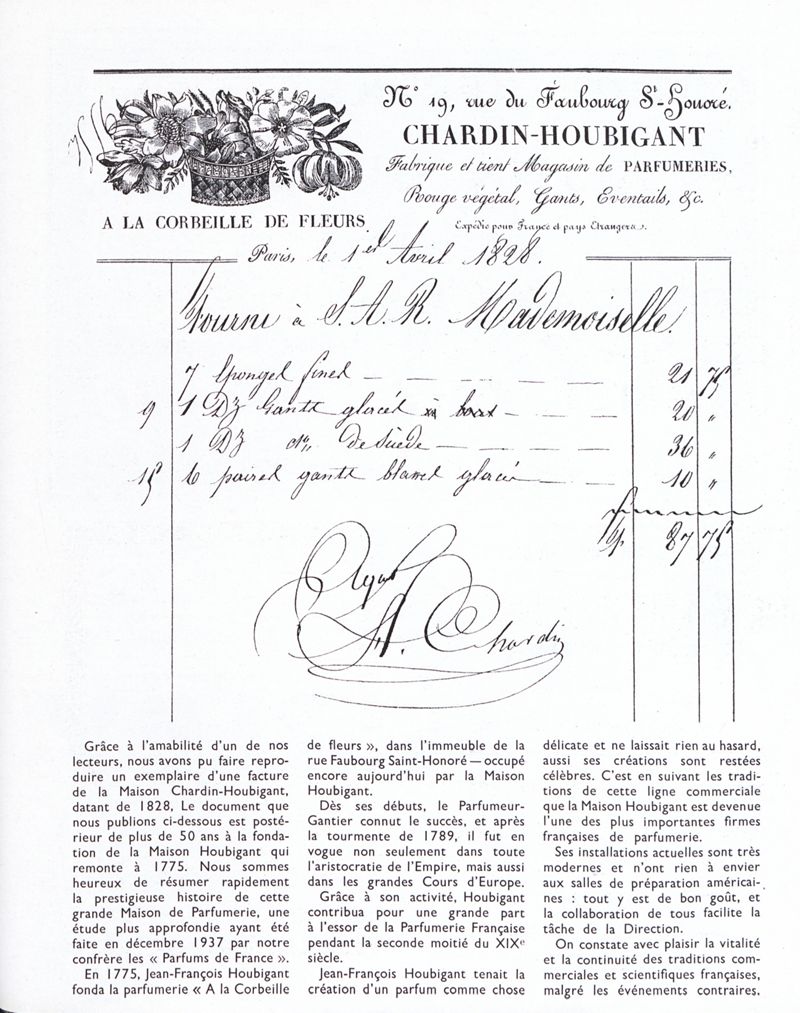 Nº 19, rue du Faubourg St-Honoré.
CHARDIN-HOUBIGANT
Fabrique et tient Magasin de PARFUMERIES,
Rouge végétal, Gants, Eventails, &c.
A LA CORBEILLE DE FLEURS.
Expédie pour France et pays Etrangers.
Paris, le 1er Avril 1828.
Fourni à S. A. R. Mademoiselle.
7 Eponges fines 21 75
9 1 Dz Gants glacés 20 "
1 Dz de Suède 36 "
15 6 paires gants blancs glacés 10 "
87 75
A. Chardin
Grâce à l'amabilité d'un de nos
lecteurs, nous avons pu faire repro-
duire un exemplaire d'une facture
de la Maison Chardin-Houbigant,
datant de 1828, Le document que
nous publions ci-dessous est posté-
rieur de plus de 50 ans à la fonda-
tion de la Maison Houbigant qui
remonte à 1775. Nous sommes
heureux de résumer rapidement
la prestigieuse histoire de cette
grande Maison de Parfumerie, une
étude plus approfondie ayant été
faite en décembre 1937 par notre
confrère les « Parfums de France ».
En 1775, Jean-François Houbigant
fonda la parfumerie « A la Corbeille
de fleurs », dans l'immeuble de la
rue Faubourg Saint-Honoré — occupé
encore aujourd'hui par la Maison
Houbigant.
Dès ses débuts, le Parfumeur-
Gantier connut le succès, et après
la tourmente de 1789, il fut en
vogue non seulement dans toute
l'aristocratie de l'Empire, mais aussi
dans les grandes Cours d'Europe.
Grâce à son activité, Houbigant
contribua pour une grande part
à l'essor de la Parfumerie Française
pendant la seconde moitié du XIXe
siècle.
Jean-François Houbigant tenait la
création d'un parfum comme chose
délicate et ne laissait rien au hasard,
aussi ses créations sont restées
célèbres. C'est en suivant les tradi-
tions de cette ligne commerciale
que la Maison Houbigant est devenue
l'une des plus importantes firmes
françaises de parfumerie.
Ses installations actuelles sont très
modernes et n'ont rien à envier
aux salles de préparation américai-
nes : tout y est de bon goût, et
la collaboration de tous facilite la
tâche de la Direction.
On constate avec plaisir la vitalité
et la continuité des traditions com-
merciales et scientifiques françaises,
malgré les événements contraires.